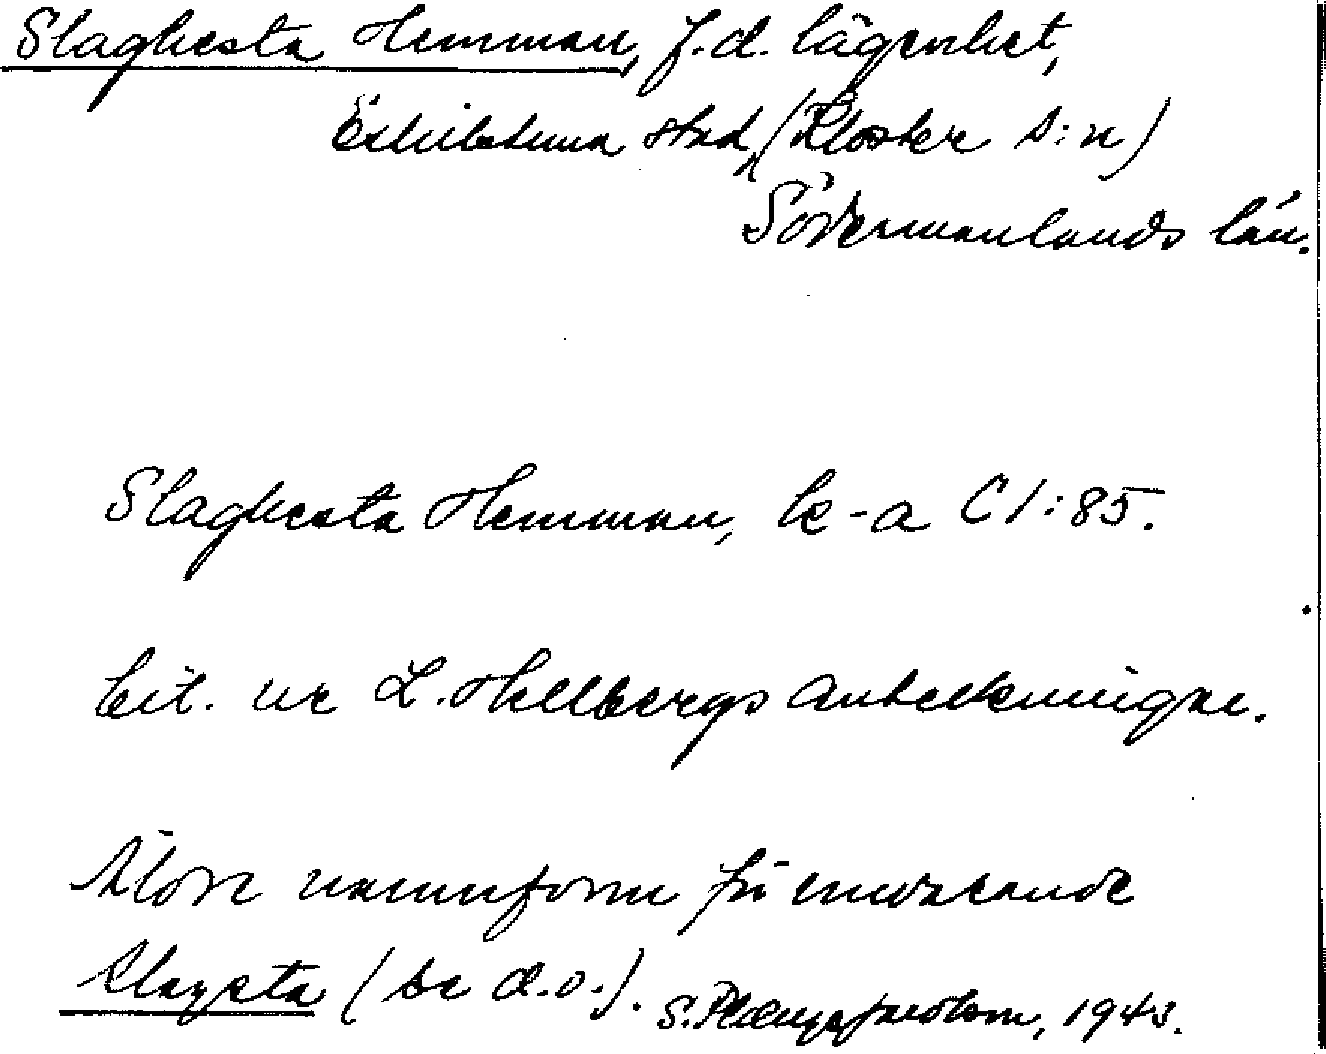 Slaghesta Hemman, f.d. lägenhet,
Eskilstuna stad, (Kloster s:n)
Södermanlands län.
Slaghesta Hemman, ke-a C1:85.
Cit. ur L. Hellbergs anteckningar.
Äldre namnform för nuvarande
Slagsta (se d.o.). S. 1943.